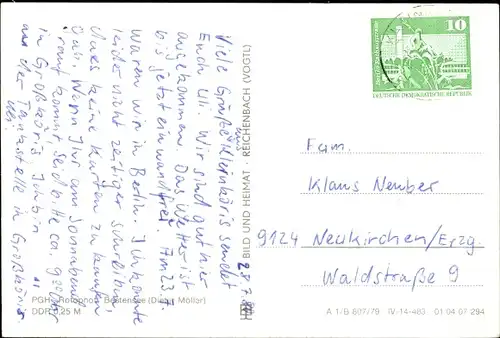 28.7.80
Viele Grüße aus Kleinköris sendet
Euch Uli. Wir sind gut hier
angekommen. Das Wetter ist
bis jetzt einwandfrei. Am 23.7.
waren wir in Berlin. Ich konnte
leider nicht zeitiger schreiben,
da es keine Karten zu kaufen
gab. Wenn Ihr am Sonnabend
kommt, seid bitte ca.
in Großköris. Ich bin
an der Tankstelle in Großköris.
BILD UND HEIMAT · REICHENBACH (VOGTL)
10
DEUTSCHE DEMOKRATISCHE REPUBLIK
Fam.
Klaus Neuber
9124 Neukirchen/Erzg.
Waldstraße 9
PGH Rotophot, Bestensee (Dieter Möller)
DDR 0,25 M
A 1/B 807/79 IV-14-483 01 04 07 294